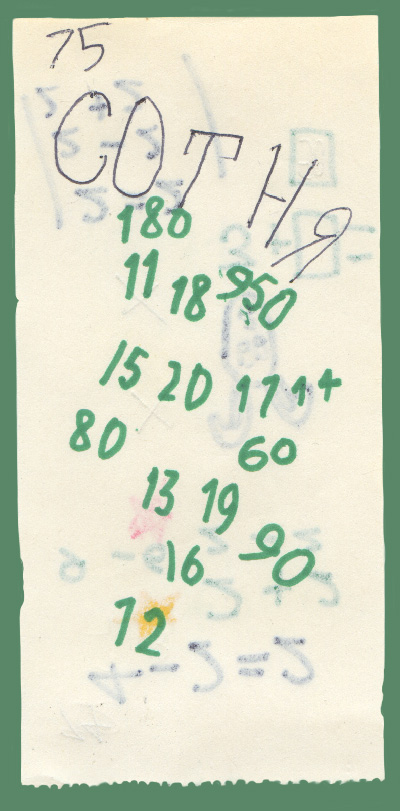 75
СОТНЯ
180
11 18 950
15 20 17 14
80 60
13 19
16 90
12